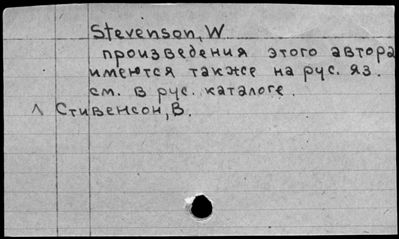 Stevenson, W.
произведения этого автора
имеются также на рус. яз.
см. в рус. каталоге.
Л Стивенсон, В.